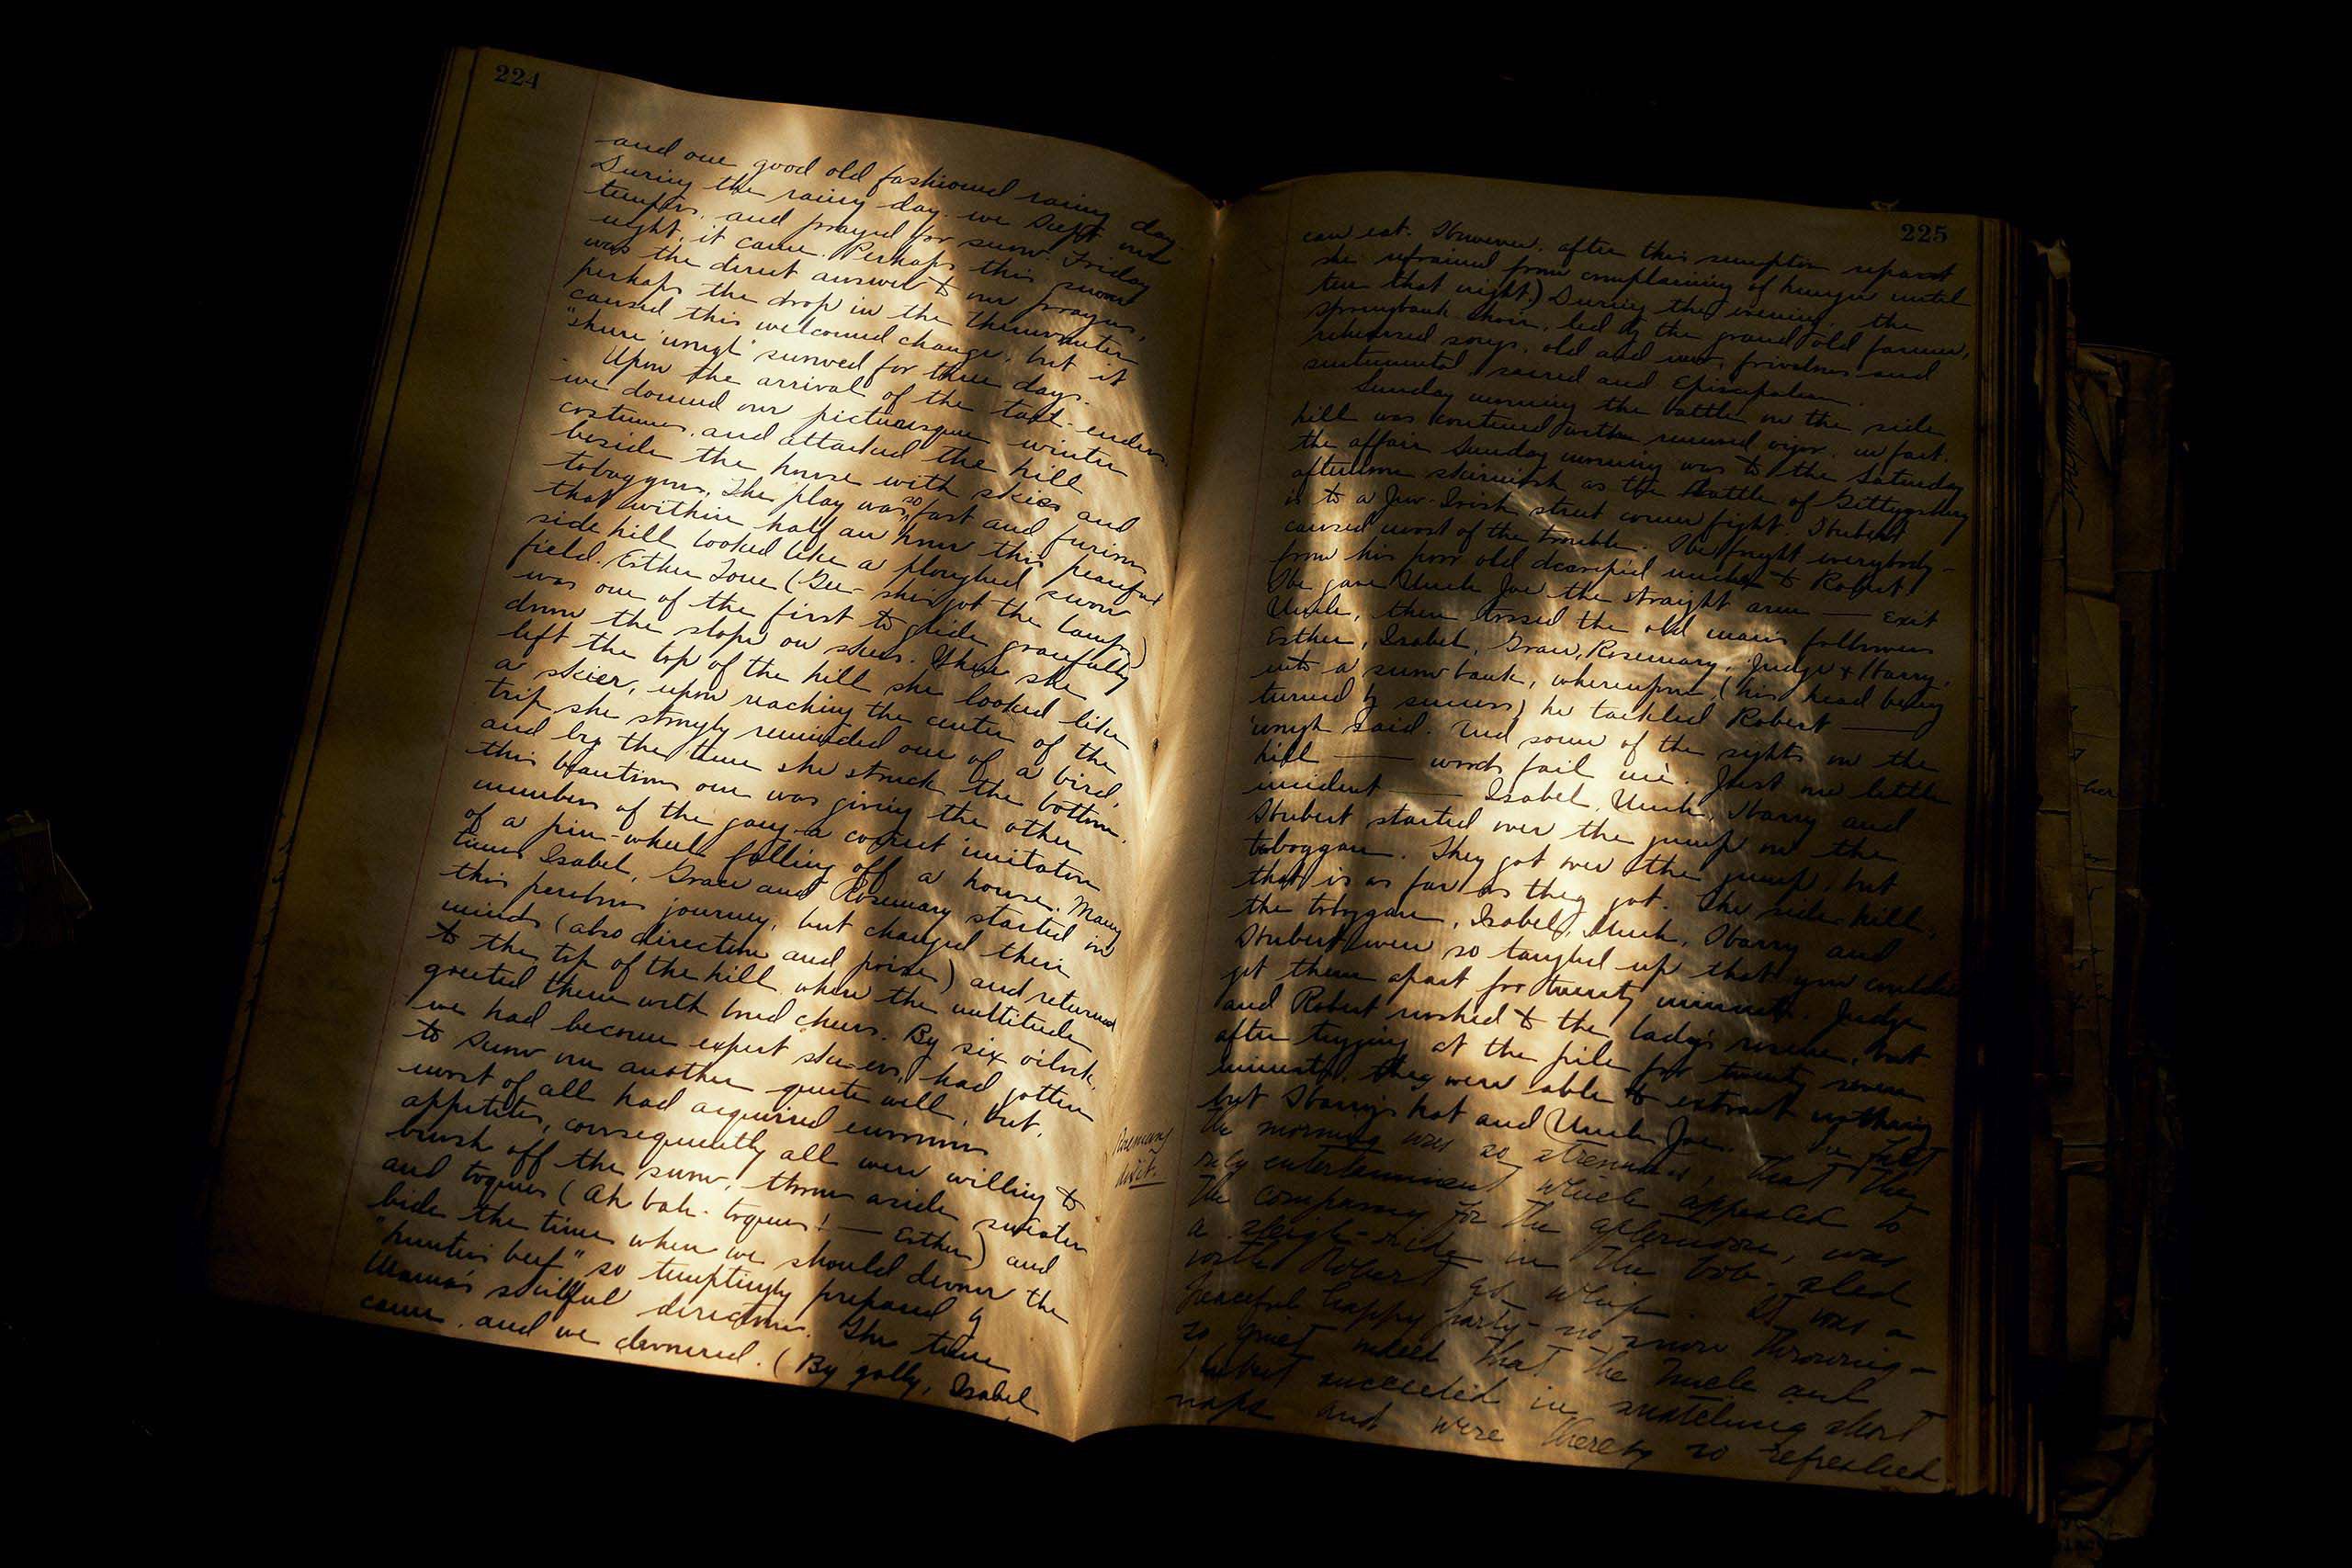 224
and one good old fashioned rainy day.
During the rainy day we swept our
tempers, and prayed for snow. Friday
night, it came. Perhaps this snow
was the direct answer to our prayers,
perhaps the drop in the thermometer
caused this welcomed change, but it
"shure 'nugh" snowed for three days.
Upon the arrival of the tail-enders
we donned our picturesque winter
costumes, and attacked the hill
beside the house with skies and
toboggans. The play was so fast and furious
that within half an hour this peaceful
side hill looked like a ploughed snow
field. Esther Love (Gee - she's got the lamps)
was one of the first to glide gracefully
down the slope on skees. When she
left the top of the hill she looked like
a skier, upon reaching the center of the
trip she strongly reminded one of a bird,
and by the time she struck the bottom,
this beautious one was giving the other
members of the gang a correct imitation
of a pin-wheel falling off a house. Many
times Isabel, Grace and Rosemary started on
this perilous journey, but changed their
minds (also direction and poise) and returned
to the top of the hill where the multitude
greeted them with loud cheers. By six o'clock,
we had become expert skee-ers, had gotten
to know one another quite well, but,
most of all had acquired enormous
appetites, consequently all were willing to
brush off the snow, throw aside sweater
and toques (Ah bah- toques! — Esther) and
bide the time when we should devour the
"hunter's beef" so temptingly prepared by
Mama's skillful direction. The time
came, and we devoured. (By golly, Isabel
Rosemary
225
can eat. However, after this sumptin repast
she refrained from complaining of hunger until
ten that night.) During the evening, the
Springbank choir, led by the grand old farmer,
rehearsed songs, old and new, frivolous and
sentimental, sacred and Episcopalian.
Sunday morning the battle on the side
hill was continued with renewed vigor, in fact,
the affair Sunday morning was to the Saturday
afternoon skirmish as the Battle of Gettysburg
is to a Jew-Irish street corner fight. Hubert
caused most of the trouble. He fought everybody -
from his poor old decrepid uncle to Robert.
He gave Uncle Joe the straight arm — exit
Uncle, then tossed the old man's followers
Esther, Isabel, Grace, Rosemary, Judge & Harry,
into a snow bank, whereupon, (his head being
turned by success) he tackled Robert —
'nugh said. And some of the sights on the
hill — words fail me. Just one little
incident — Isabel, Uncle, Harry and
Hubert started over the jump on the
toboggan. They got over the jump, but
that is as far as they got. The side hill,
the toboggan, Isabel, Uncle, Harry and
Hubert were so tangled up that you couldn't
get them apart for twenty minutes. Judge
and Robert rushed to the lady's rescue, but
after tugging at the pile for twenty seven
minutes, they were able to extract nothing
but Harry's hat and Uncle Joe.
The morning was so strenuous, that the
only entertainment which appealed to
the company for the afternoon, was
a sleigh-ride in the bob-sled
with Robert as whip It was a
peaceful happy party - no snow throwing -
so quiet indeed that the Uncle and
Hubert succeeded in snatching short
naps and were thereby so refreshed
her